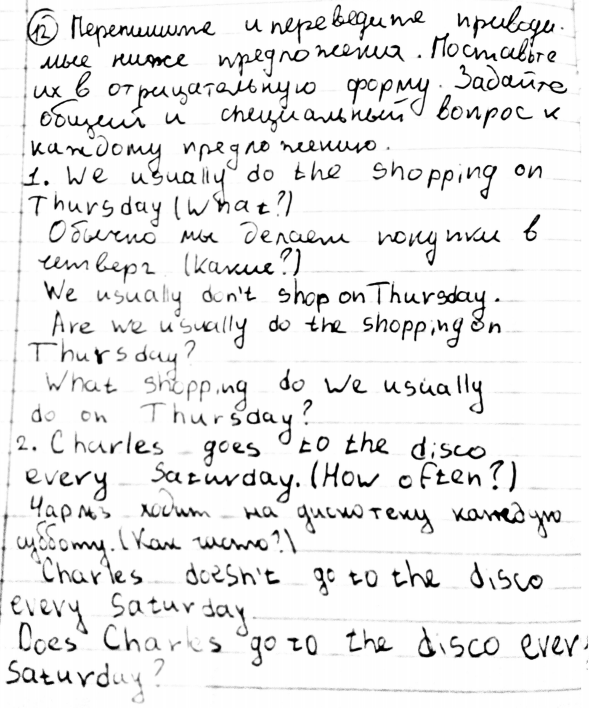 12 Перепишите и переведите приводи-
мые ниже предложения. Поставьте
их в отрицательную форму. Задайте
общий и специальный вопрос к
каждому предложению.
1. We usually do the shopping on
Thursday (What?)
Обычно мы делаем покупки в
четверг (Какие?)
We usually don't shop on Thursday.
Are we usually do the shopping on
Thursday?
What shopping do we usually
do on Thursday?
2. Charles goes to the disco
every Saturday. (How often?)
Чарльз ходит на дискотеку каждую
субботу. (Как часто?)
Charles doesn't go to the disco
every Saturday.
Does Charles go to the disco every
Saturday?